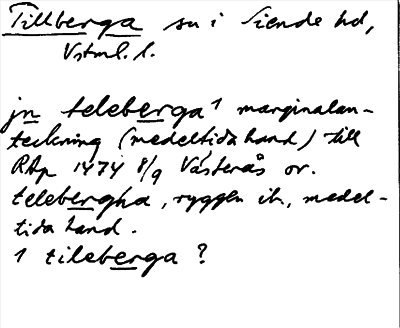 Tillberga sn i Siende hd,
Vstml. l.
jn teleberga¹ marginalan-
teckning (medeltida hand) till
RAp 1474 8/9 Västerås or.
telebergha, ryggen ib, medel-
tida hand.
1 tileberga ?